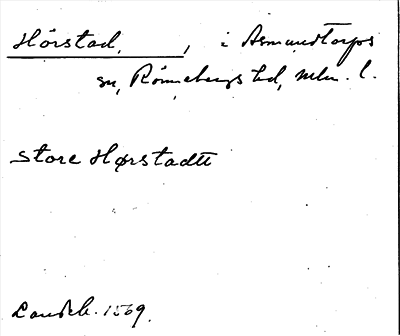 Hörstad, , i Asmundtorps
sn, Rönnebergs hd, Mlm. l.
Store Hørstadtt
Landeb. 1569.